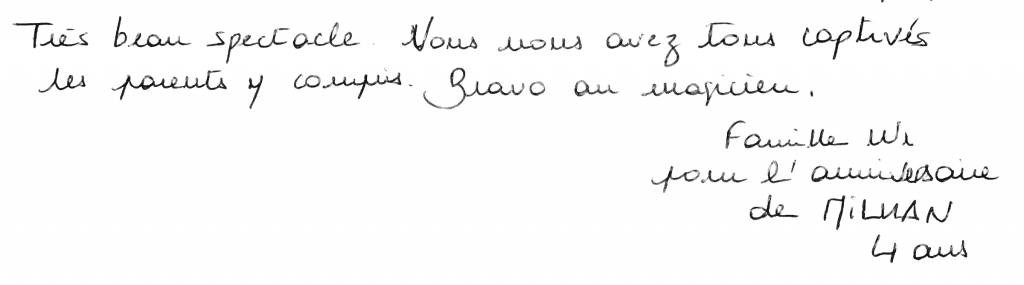 Très beau spectacle. Vous nous avez tous captivés
les parents y compris. Bravo au magicien.
Famille
pour l'anniversaire
de
4 ans